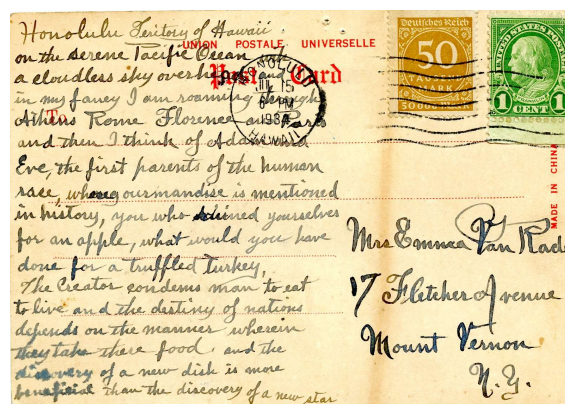 Honolulu Teritory of Hawaii
on the serene Pacific Ocean
a cloudless sky overhead and
in my fancy I am roaming through
Athens Rome Florence and Paris
and then I think of Adam and
Eve, the first parents of the human
race, whose gourmandise is mentioned
in history, you who ruined yourselves
for an apple, what would you have
done for a truffled turkey,
The Creator condems man to eat
to live and the destiny of nations
depends on the manner wherein
they take there food, and the
discovery of a new dish is more
beneficial than the discovery of a new star
UNION POSTALE UNIVERSELLE
Post Card
To
HONOLULU
JUL 15
PM
1934
HAWAII
Deutsches Reich
50
TAUSEND
MARK
50
UNITED STATES POSTAGE
1 CENT 1
MADE IN CHINA
Mrs Emma Van Rad
17 Fletcher Avenue
Mount Vernon
N.Y.